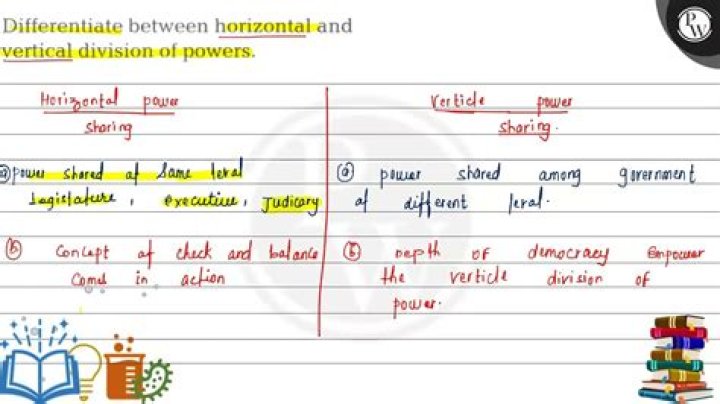 Differentiate between horizontal and
vertical division of powers.
PW
Horizontal power
sharing
(a) power shared at same level
Legislature, executive, Judicary
(b) concept of check and balance
Comes in action
Verticle power
sharing.
(a) power shared among government
of different level.
(b) Depth of democracy empower
the verticle division of
power.